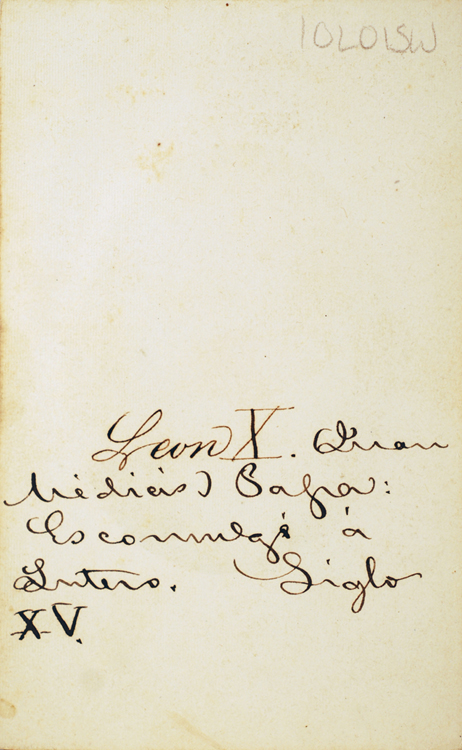 10L01SW
Leon X. (Juan
Médicis) Papa:
Escomulgó à
Lutero. Siglo
XV.